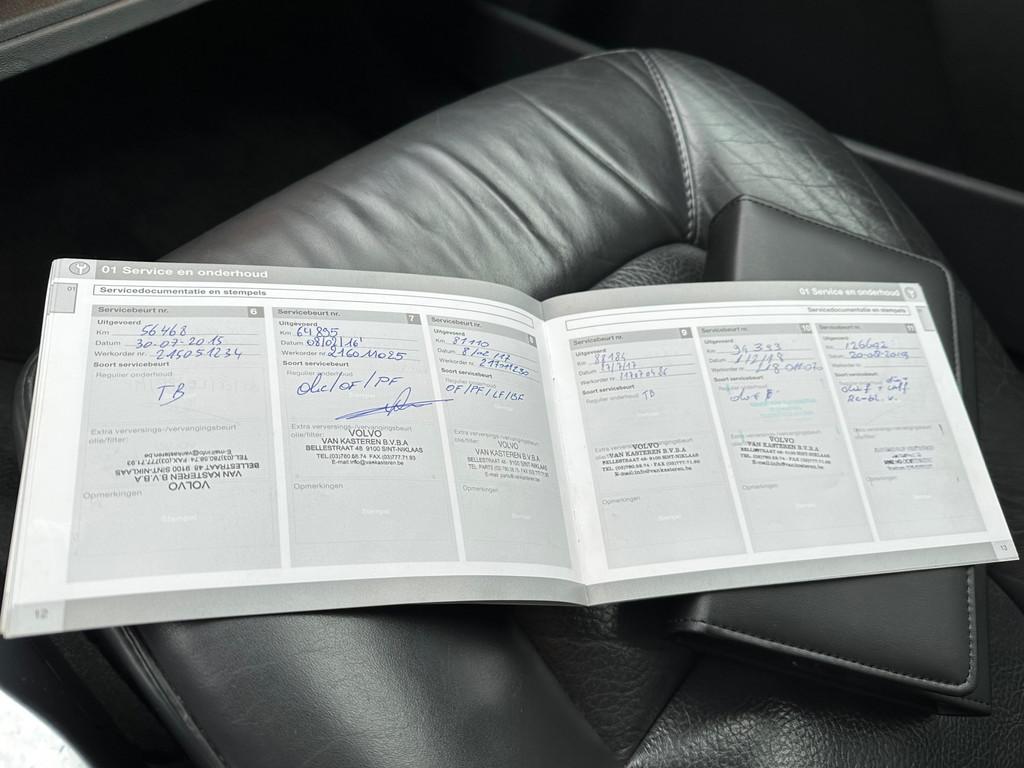 01 Service en onderhoud
01
Servicedocumentatie en stempels
Servicebeurt nr. 6
Uitgevoerd
Km 56468
Datum 30-07-2015
Werkorder nr. 215051234
Soort servicebeurt
Regulier onderhoud
TB
Extra verversings-/vervangingsbeurt
olie/filter:
VOLVO
VAN KASTEREN B.V.B.A
BELLESTRAAT 48 9100 SINT-NIKLAAS
TEL.(03)780.58.74 FAX.(03)777.71.93
E-mail:info@vankasteren.be
Opmerkingen
Stempel
Servicebeurt nr. 7
Uitgevoerd
Km 64895
Datum 08/02/16
Werkorder nr. 216011025
Soort servicebeurt
Regulier onderhoud
olie/OF/PF
Extra verversings-/vervangingsbeurt
olie/filter:
VOLVO
VAN KASTEREN B.V.B.A
BELLESTRAAT 48 9100 SINT-NIKLAAS
TEL.(03)780.58.74 FAX.(03)777.71.93
E-mail:info@vankasteren.be
Opmerkingen
Stempel
Servicebeurt nr. 8
Uitgevoerd
Km 81110
Datum
Werkorder nr.
Soort servicebeurt
Regulier onderhoud
OF/PF/LF/BF
Extra verversings-/vervangingsbeurt
olie/filter:
VOLVO
VAN KASTEREN B.V.B.A
BELLESTRAAT 48 9100 SINT-NIKLAAS
Opmerkingen
Stempel
12
01 Service en onderhoud
Servicedocumentatie en stempels
Servicebeurt nr. 9
Uitgevoerd
Km
Datum
Werkorder nr.
Soort servicebeurt
Regulier onderhoud TB
Extra verversings-/vervangingsbeurt
olie/filter:
VOLVO
VAN KASTEREN B.V.B.A
BELLESTRAAT 48 9100 SINT-NIKLAAS
TEL.(03)780.58.74 - FAX (03)777.71.93
E-mail:info@vankasteren.be
Opmerkingen
Stempel
Servicebeurt nr. 10
Uitgevoerd
Km
Datum
Werkorder nr.
Soort servicebeurt
Regulier onderhoud
Extra verversings-/vervangingsbeurt
olie/filter:
VOLVO
VAN KASTEREN B.V.B.A
BELLESTRAAT 48 9100 SINT-NIKLAAS
TEL.(03)780.58.74 - FAX (03)777.71.93
E-mail:info@vankasteren.be
Opmerkingen
Stempel
Servicebeurt nr. 11
Uitgevoerd
Km
Datum
Werkorder nr.
Soort servicebeurt
Regulier onderhoud
Extra verversings-/vervangingsbeurt
olie/filter:
Opmerkingen
Stempel
13